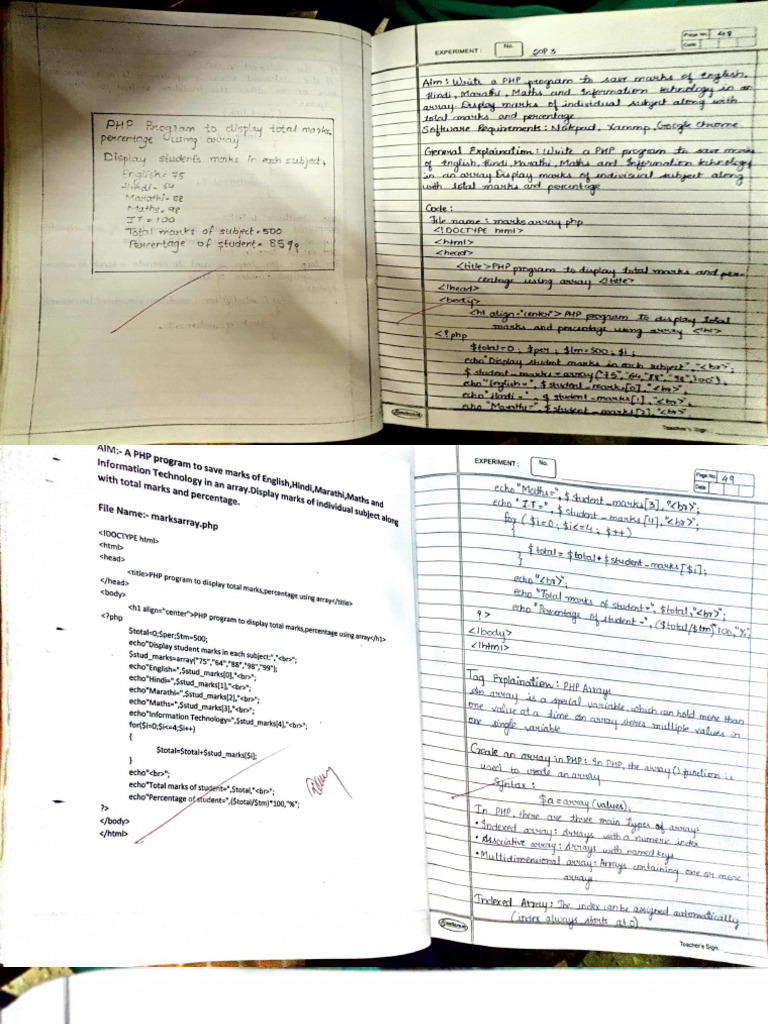 PHP Program to display total marks,
percentage using array
Display students marks in each subject,
English = 75
Hindi = 64
Marathi = 88
Maths = 98
IT = 100
Total marks of subject = 500
Percentage of student = 85%
EXPERIMENT :
No.
SOP 3
Page No. 48
Date
Aim : Write a PHP program to save marks of English,
Hindi, Marathi, Maths and Information technology in an
array Display marks of individual subject along with
total marks and percentage
Software Requirements : Notepad, Xammp, Google Chrome
General Explaination : Write a PHP program to save marks
of English, Hindi, Marathi, Maths and Information technology
in an array Display marks of individual subject along
with total marks and percentage
Code :
File name : marks array php
<!DOCTYPE html>
<html>
<head>
<title> PHP program to display total marks and per-
centage using array <title>
</head>
<body>
<h1 align="center"> PHP program to display total
marks and percentage using array <h1>
<?php
$total=0; $per; $tm=500; $i;
echo"Display student marks in each subject", "<br>";
$ student_marks = array ("75", "64", "88", "98", 100");
echo "English =", $ student_marks[0], "<br>";
echo "Hindi =", $ student_marks[1], "<br>";
echo "Marathi =", $ student_marks[2], "<br>"
Teacher's Sign.
AIM:- A PHP program to save marks of English,Hindi,Marathi,Maths and
Information Technology in an array.Display marks of individual subject along
with total marks and percentage.
File Name:- marksarray.php
<!DOCTYPE html>
<html>
<head>
<title>PHP program to display total marks,percentage using array</title>
</head>
<body>
<h1 align="center">PHP program to display total marks,percentage using array</h1>
<?php
$total=0;$per;$tm=500;
echo"Display student marks in each subject:","<br>";
$stud_marks=array("75","64","88","98","99");
echo"English=",$stud_marks[0],"<br>";
echo"Hindi=",$stud_marks[1],"<br>";
echo"Marathi=",$stud_marks[2],"<br>";
echo"Maths=",$stud_marks[3],"<br>";
echo"Information Technology=",$stud_marks[4],"<br>";
for($i=0;$i<=4;$i++)
{
$total=$total+$stud_marks[$i];
}
echo"<br>";
echo"Total marks of student=",$total,"<br>";
echo"Percentage of student=",($total/$tm)*100,"%";
?>
</body>
</html>
EXPERIMENT :
No.
Page No. 49
Date
echo "Maths=", $ student_marks [3], "<br>";
echo "I.T =", $ student_marks [4], "<br>";
for ( $i=0; $i<=4; $++)
{
$ total = $total+ $ student_marks[$i];
}
echo "<br>";
echo "Total marks of student=", $total, "<br>";
echo "Percentage of student =", ($total/$tm)*100, "%";
?>
</body>
</html>
Tag Explaination : PHP Arrays
An array is a special variable, which can hold more than
one value at a time An array stores multiple values in
one single variable
Create an array in PHP : In PHP, the array () function is
used to create an array
Syntax :
$a = array (values);
In PHP, there are three main types of array:
• Indexed array : Arrays with a numeric index
• Associative array : Arrays with named keys
• Multidimensional array : Arrays containing one or more
arrays
Indexed Array : The index can be assigned automatically
(index always starts at 0)
Teacher's Sign.